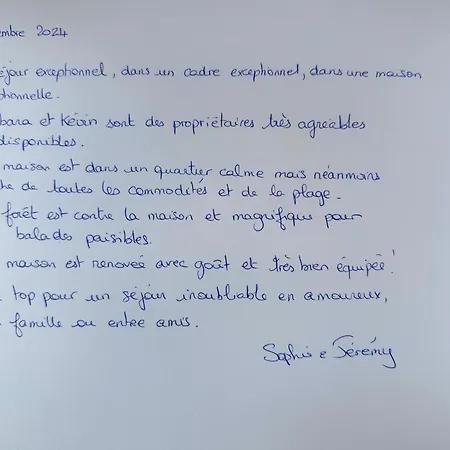 embre 2024
éjour exceptionnel, dans un cadre exceptionnel, dans une maison
ptionnelle.
bara et Kévin sont des propriétaires très agréables
disponibles.
maison est dans un quartier calme mais néanmoins
he de toutes les commodités et de la plage.
forêt est contre la maison et magnifique pour
balades paisibles.
maison est renoveé avec goût et très bien équipée !
top pour un séjour inoubliable en amoureux,
famille ou entre amis.
Sophie & Jérémy